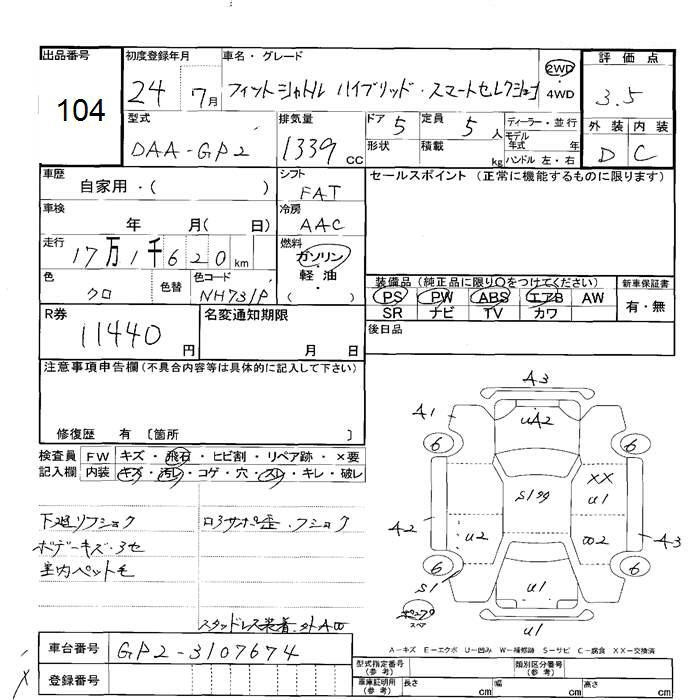 出品番号
104
初度登録年月
24 7月
車名・グレード
フィットシャトル ハイブリッド・スマートセレクション
2WD
4WD
評価点
3.5
型式
DAA-GP2
排気量
1339 CC
ドア 5
形状
定員 5 人
積載 kg
ディーラー・並行
モデル年式 年
ハンドル 左・右
外装 内装
D C
車歴
自家用・( )
シフト
FAT
セールスポイント (正常に機能するものに限ります)
車検
年 月( 日)
冷房
AAC
走行
17万1千620km
燃料
ガソリン
軽油
( )
色
クロ
色替
色コード
NH731P
装備品 (純正品に限り○をつけてください)
PS PW ABS エアB AW
SR ナビ TV カワ
新車保証書
有・無
R券
11440 円
名変通知期限
月 日
後日品
注意事項申告欄(不具合内容等は具体的に記入して下さい)
修復歴 有 〔箇所 〕
検査員記入欄
FW キズ・飛石・ヒビ割・リペア跡・×要
内装 キズ・汚レ・コゲ・穴・スレ・キレ・破レ
下廻リフショク
ボデーキズ・ヨセ
室内ペット毛
ロアサポ歪・フショク
スタッドレス装着・外AW
A3
A1
UA2
6
6
S199
XX
U1
A2
U2
W2
A3
6
6
S1
U1
U1
スペア
A-キズ E-エクボ U-凹み W-補修跡 S-サビ C-腐食 XX-交換済
車台番号
GP2-3107674
登録番号
型式指定番号(参考)
類別区分番号(参考)
車庫証明用(参考)
長さ cm
幅 cm
高さ cm